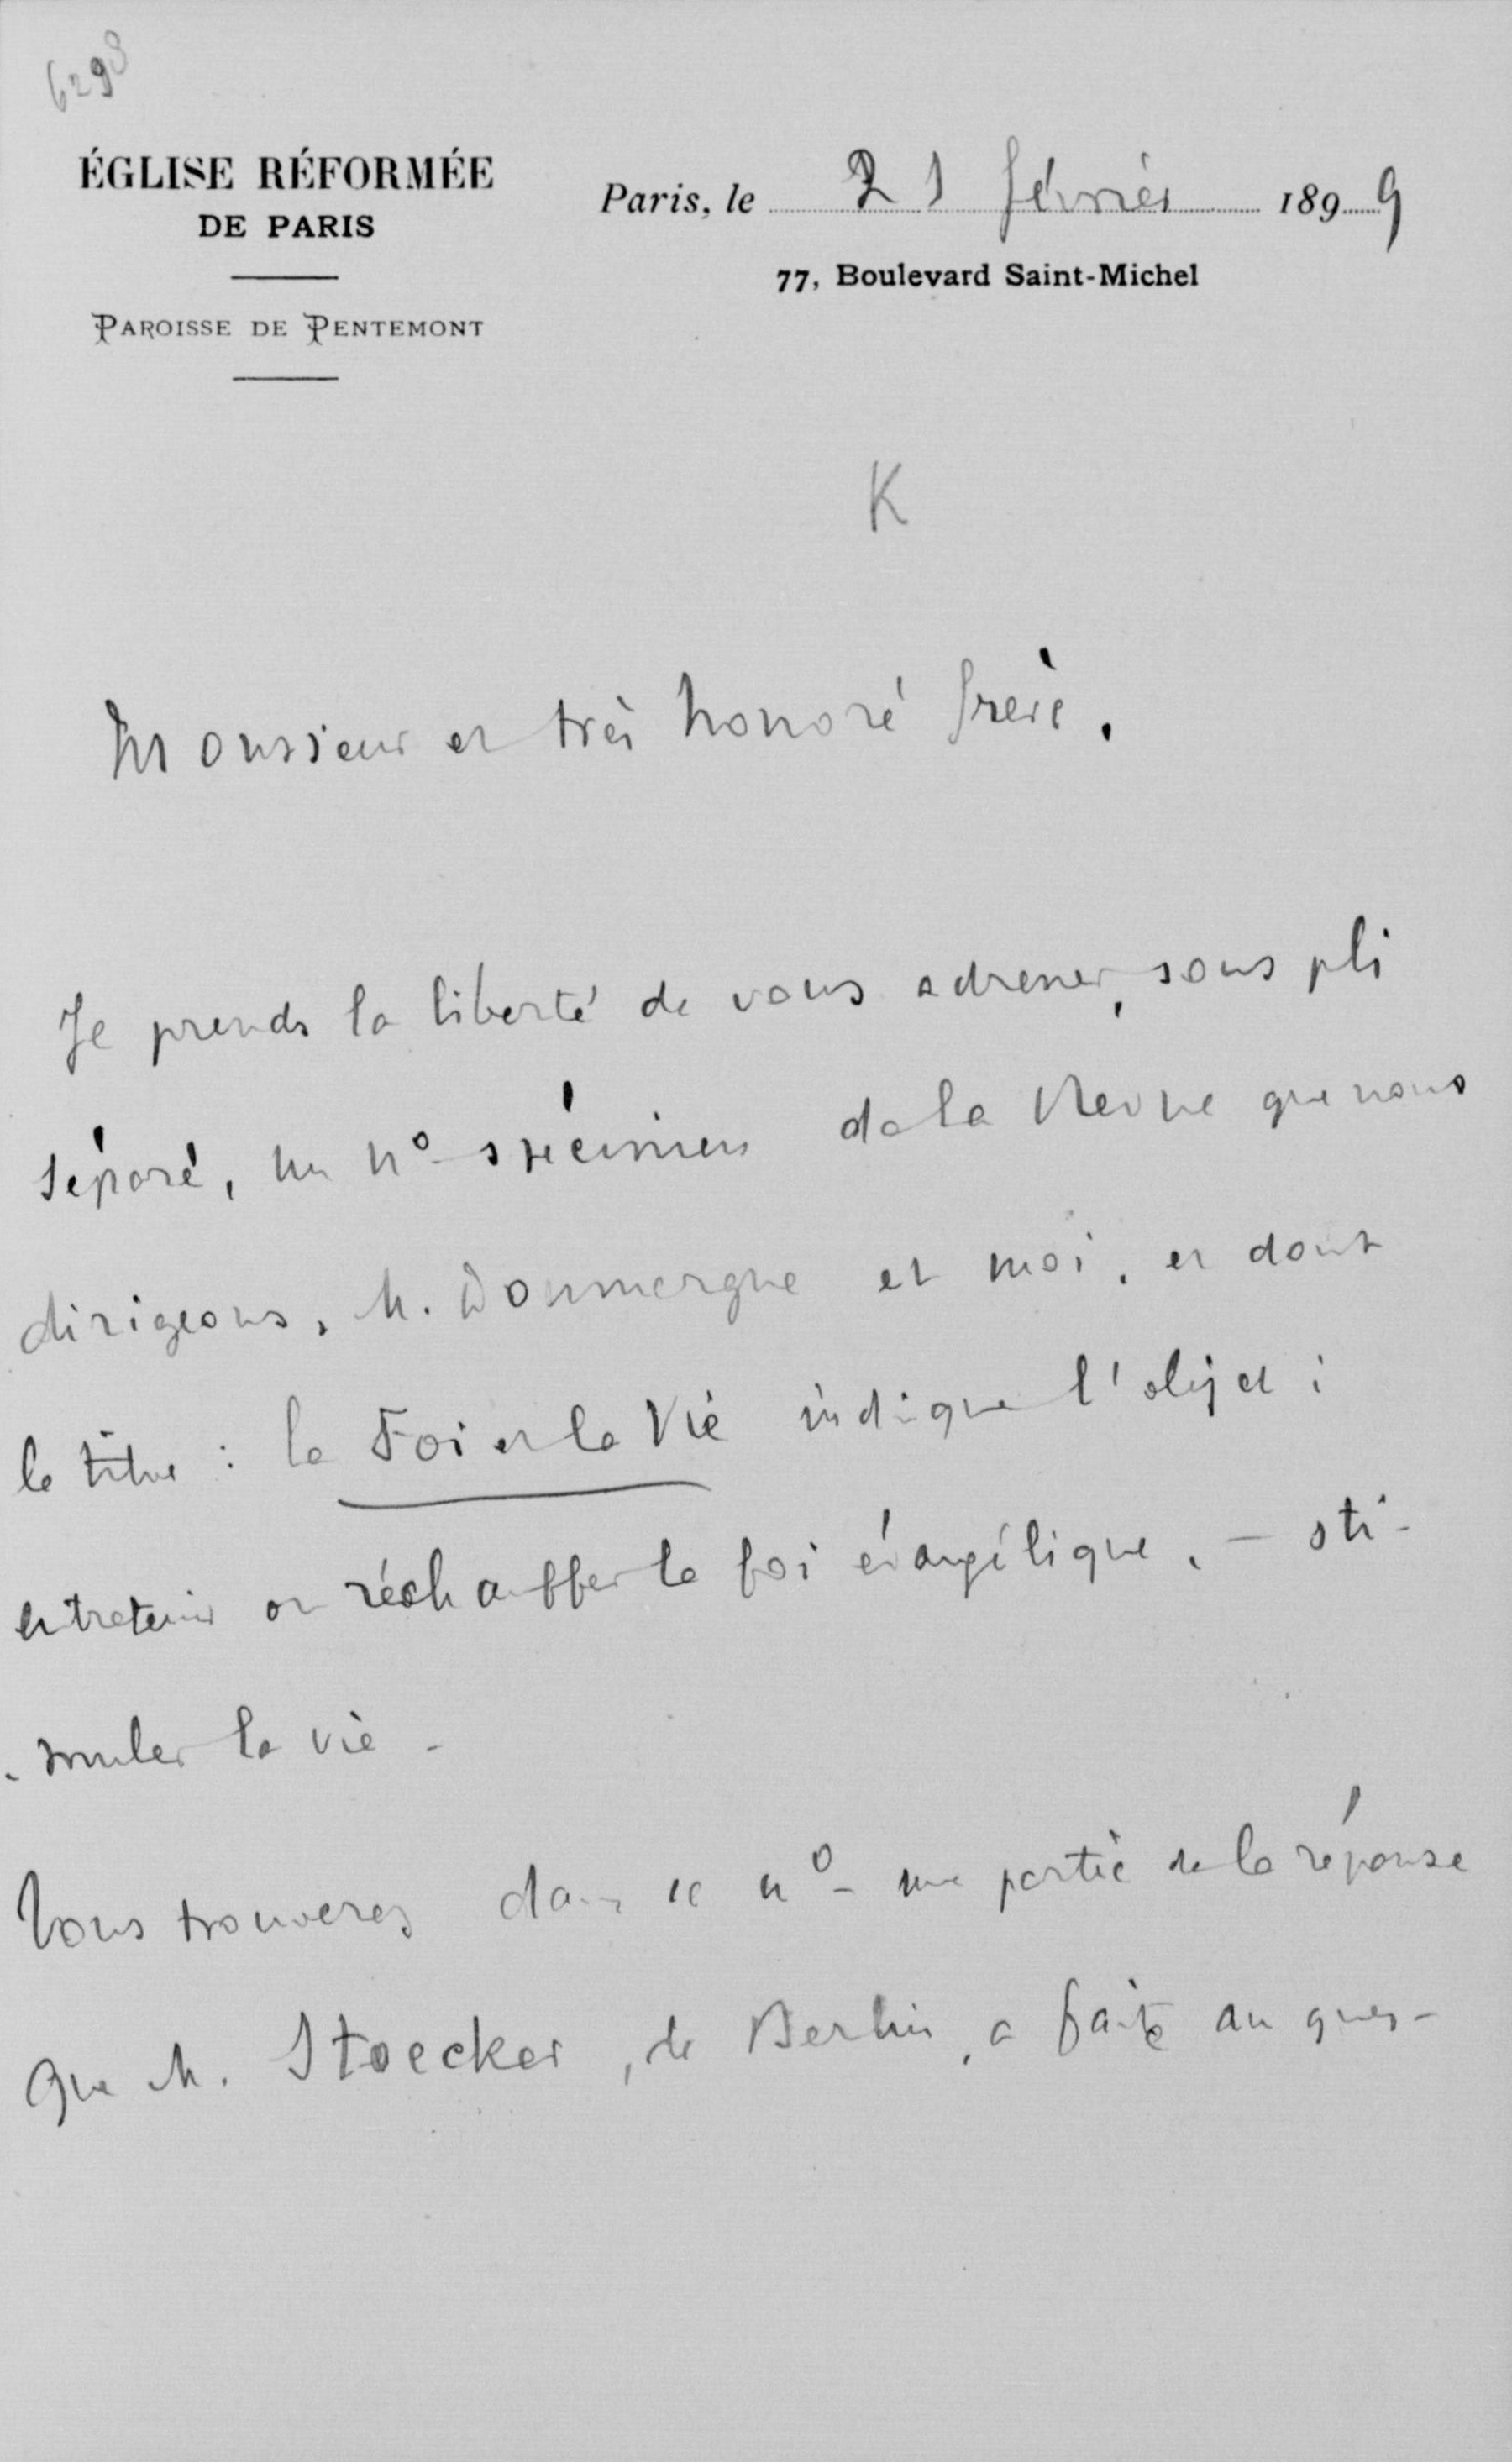 6298
ÉGLISE RÉFORMÉE
DE PARIS
PAROISSE DE PENTEMONT
Paris, le 21 février 1899
77, Boulevard Saint-Michel
K
Monsieur et très honoré frère.
Je prends la liberté de vous adresser, sous pli
séparé, un nº spécimen de la Revue que nous
dirigeons, M. Doumergue et moi, et dont
le titre : la Foi et la Vie indique l'objet :
entretenir ou réchauffer la foi évangélique, - sti-
-muler la vie -
Vous trouverez dans ce nº une partie de la réponse
que M. Stoecker, de Berlin, a faite au ques-